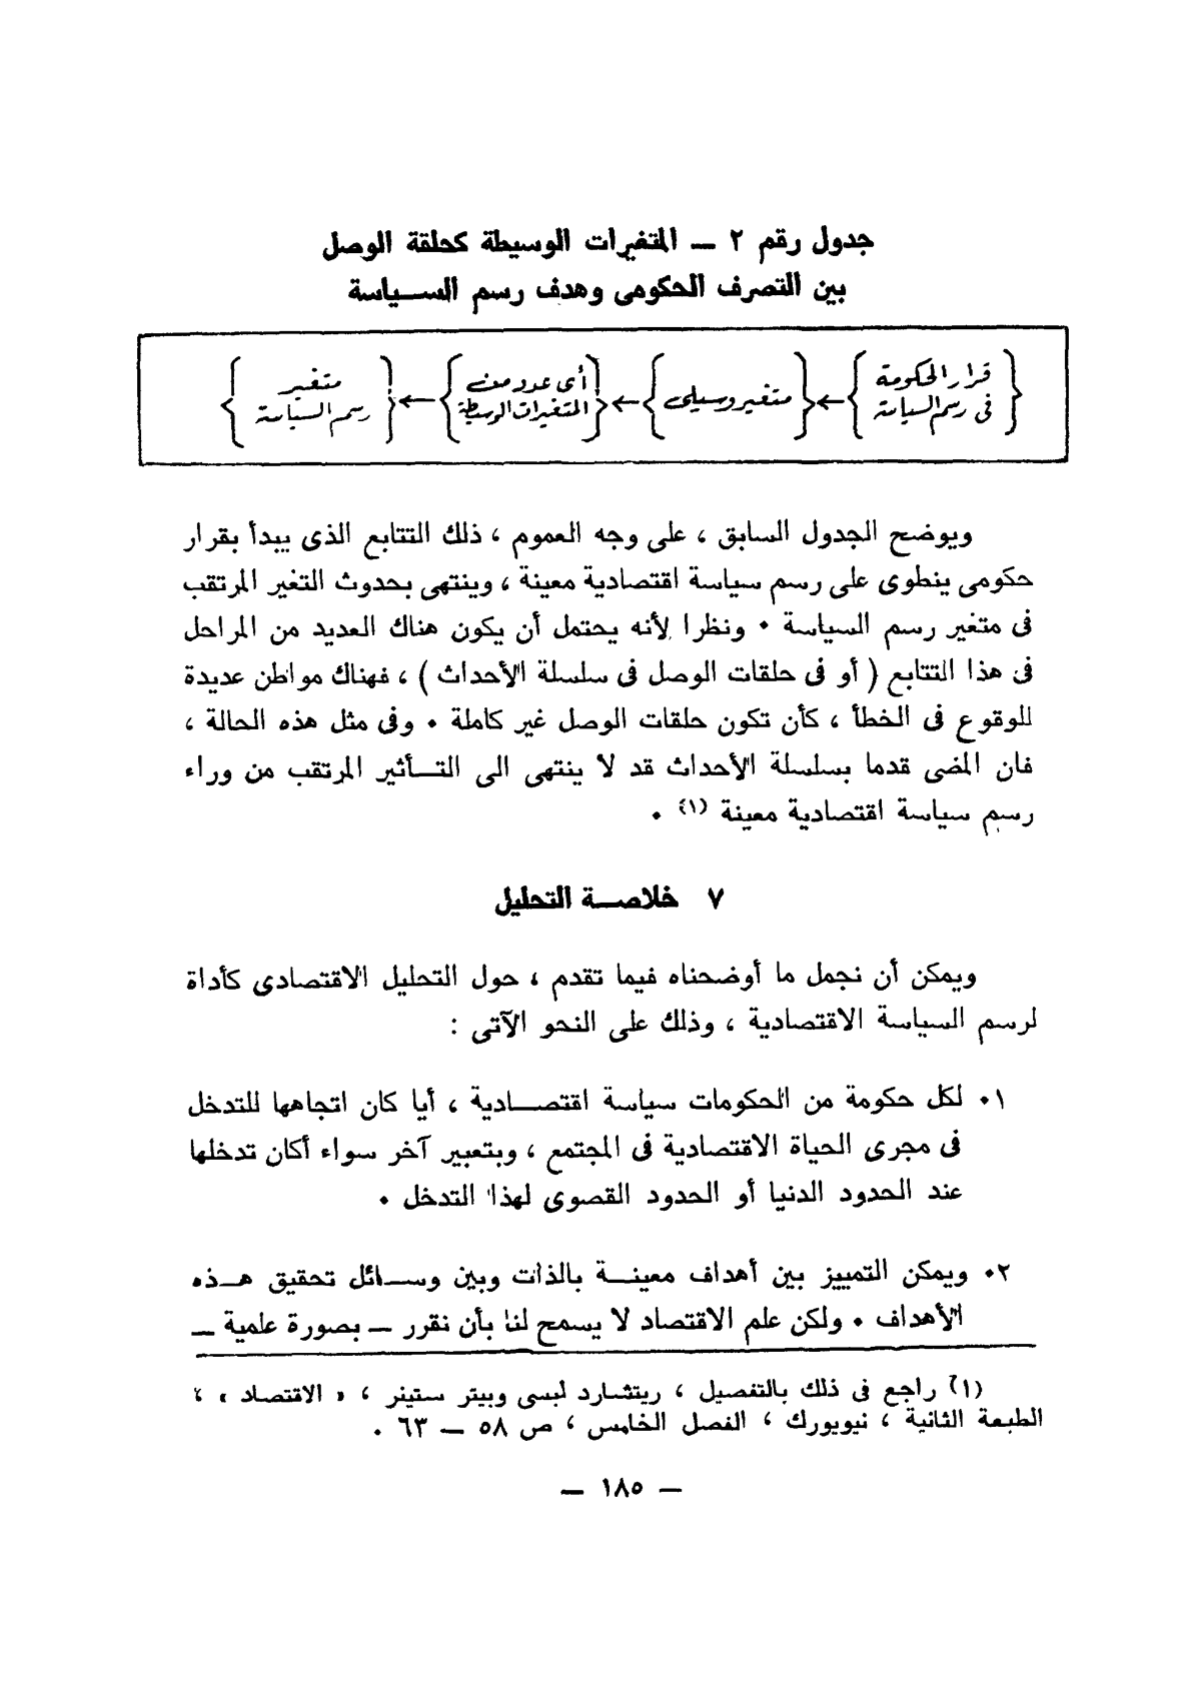 جدول رقم ٢ ــ المتغيرات الوسيطة كحلقة الوصل
بين التصرف الحكومى وهدف رسم الســياسة
{قرار الحكومة فى رسم السياسة} ← {متغير وسيلى} ← {أى عدد من المتغيرات الوسيطة} ← {متغير رسم السياسة}
ويوضح الجدول السابق ، على وجه العموم ، ذلك التتابع الذى يبدأ بقرار
حكومى ينطوى على رسم سياسة اقتصادية معينة ، وينتهى بحدوث التغير المرتقب
فى متغير رسم السياسة ٠ ونظرا لأنه يحتمل أن يكون هناك العديد من المراحل
فى هذا التتابع ( أو فى حلقات الوصل فى سلسلة الأحداث ) ، فهناك مواطن عديدة
للوقوع فى الخطأ ، كأن تكون حلقات الوصل غير كاملة ٠ وفى مثل هذه الحالة ،
فان المضى قدما بسلسلة الأحداث قد لا ينتهى الى التــأثير المرتقب من وراء
رسم سياسة اقتصادية معينة (١) ٠
٧ خلاصــة التحليل
ويمكن أن نجمل ما أوضحناه فيما تقدم ، حول التحليل الاقتصادى كأداة
لرسم السياسة الاقتصادية ، وذلك على النحو الآتى :
١٠ لكل حكومة من الحكومات سياسة اقتصــادية ، أيا كان اتجاهها للتدخل
فى مجرى الحياة الاقتصادية فى المجتمع ، وبتعبير آخر سواء أكان تدخلها
عند الحدود الدنيا أو الحدود القصوى لهذا التدخل ٠
٢٠ ويمكن التمييز بين أهداف معينــة بالذات وبين وســائل تحقيق هــذه
الأهداف ٠ ولكن علم الاقتصاد لا يسمح لنا بأن نقرر ــ بصورة علمية ــ
(١) راجع فى ذلك بالتفصيل ، ريتشارد لبسى وبيتر ستينر ، « الاقتصاد » ،
الطبعة الثانية ، نيويورك ، الفصل الخامس ، ص ٥٨ ــ ٦٣ .
ــ ١٨٥ ــ